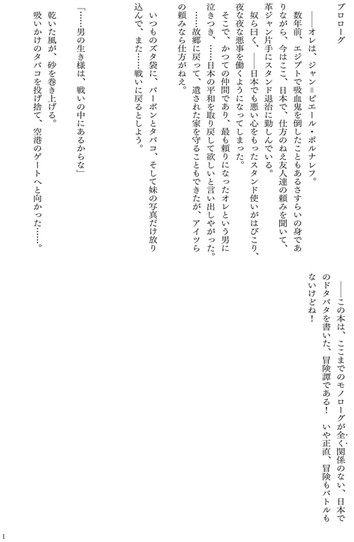 プロローグ
――オレは、ジャン＝ピエール・ポルナレフ。
数年前、エジプトで吸血鬼を倒したこともあるさすらいの身であ
りながら、今はここ、日本で、仕方のねえ友人達の頼みを聞いて、
革ジャン片手にスタンド退治に勤しんでいる。
奴ら曰く、――日本でも悪い心をもったスタンド使いがはびこり、
夜な夜な悪事を働くようになってしまった。
そこで、かつての仲間であり、最も頼りになったオレという男に
泣きつき、……日本の平和を取り戻して欲しいと言い出しやがった。
……故郷に戻って、遺された家を守ることもできたが、アイツら
の頼みなら仕方がねえ。
いつものズタ袋に、バーボンとタバコ、そして妹の写真だけ放り
込んで、また……戦いに戻るとしよう。
「……男の生き様は、戦いの中にあるからな」
乾いた風が、砂を巻き上げる。
吸いかけのタバコを投げ捨て、空港のゲートへと向かった……。
――この本は、ここまでのモノローグが全く関係のない、日本で
のドタバタを書いた、冒険譚である！　いや正直、冒険もバトルも
ないけどね！
1